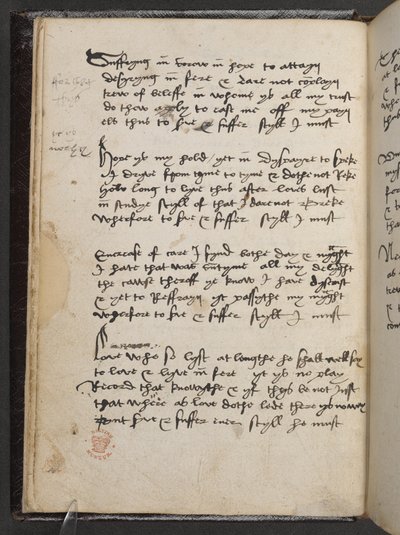 Suffryng in sorow in hope to attayn
desyryng in fere & dare not co͞playn
trew of beleffe in whome ys all my trust
do thow apply to ease me off my payn
els thus to sue & suffer styll I must
Hope ys my hold yet in dyspayre to speke
I dryve from tyme to tyme & dothe not Reke
how long to lyve thus after loves lust
in studye styll of that I dare not breke
wherefore to sue & suffer styll I must
Encrease of care I fynd bothe day & nyght
I hate that was sumtyme all my delyght
the cawse theroff ye know I have dyscust
& yet to Reffrayn yt passythe my myght
wherfore to sue & suffer styll I must
love who so lyst at lengthe he shall well say
to love & lyve in fere yt ys no play
Record that knowythe & yf thys be not Just
that where as love dothe lede there ys no way
but sue & suffer ever styll he must